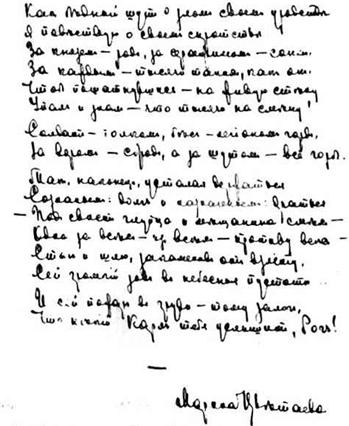 Как нѣжный шут о злом своем уродствѣ
Я повѣствую о своем сиротствѣ
За князем – род, за серафимом – сонм.
За каждым – тысячи таких, как он.
Чтоб пошатнувшись – на живую стѣну
Упал и знал – что тысячи на смѣну!
Солдат – полком, бѣс – легіоном горд,
За вором – сброд, а за шутом – всё горб.
Так, наконец, усталая держаться
Сознаньем: долг и назначеньем: драться
– Под свист глупца и мѣщанина смѣх –
Одна за всѣх – из всѣх – противу всѣх –
Стою и шлю, закаменев от взлёту,
Сей громкій зов в небесныя пустоты.
И сей пожар в груди – тому залог,
Что нѣкій Карл тебя услышит, Рог!
—
Марина Цвѣтаева